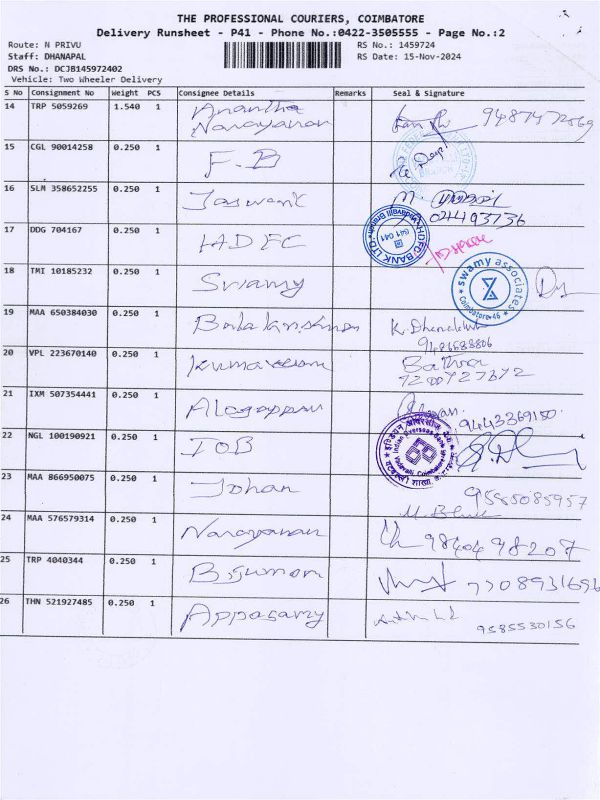 THE PROFESSIONAL COURIERS, COIMBATORE
Delivery Runsheet - P41 - Phone No.:0422-3505555 - Page No.:2
Route: N PRIVU
RS No.: 1459724
Staff: DHANAPAL
RS Date: 15-Nov-2024
DRS No.: DCJB145972402
Vehicle: Two Wheeler Delivery
S No Consignment No Weight PCS Consignee Details Remarks Seal & Signature
14 TRP 5059269 1.540 1 Anantha
Narayanan
15 CGL 90014258 0.250 1 F.B
16 SLM 358652255 0.250 1 Jaswant
17 DDG 704167 0.250 1 HDFC
HDFC BANK LTD.
641 041
18 TMI 10185232 0.250 1 Swamy
swamy associates
Coimbatore-46
19 MAA 650384030 0.250 1 Balakrishnan
20 VPL 223670140 0.250 1 Kumaresan
21 IXM 507354441 0.250 1 Alagappan
9443369150
22 NGL 100190921 0.250 1 IOB
Indian Overseas Bank
23 MAA 866950075 0.250 1 Johan 9585085957
24 MAA 576579314 0.250 1 Narayanan 9840498207
25 TRP 4040344 0.250 1 Bijumon
26 THN 521927485 0.250 1 Appasamy 9585530156